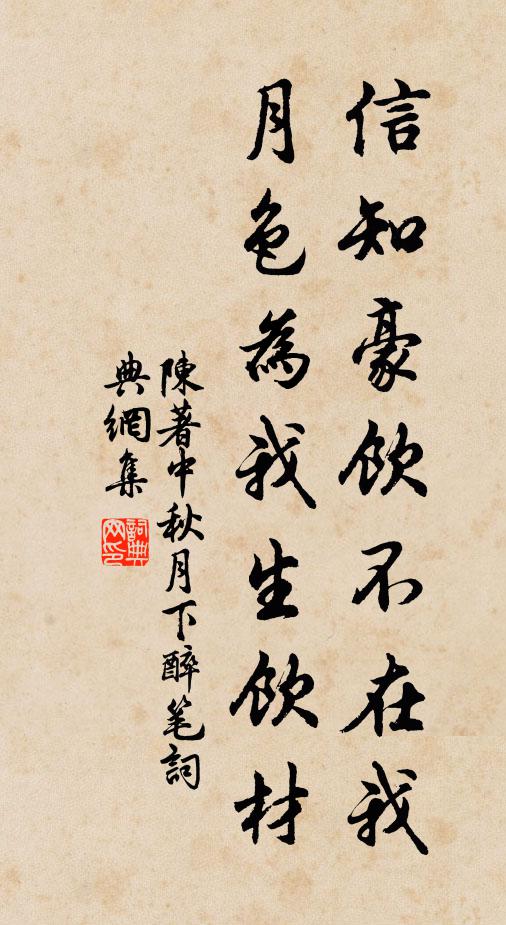 信知豪飲不在我
月色為我生飲材
陳著中秋月下醉笔詞
典網集
詞典
网印